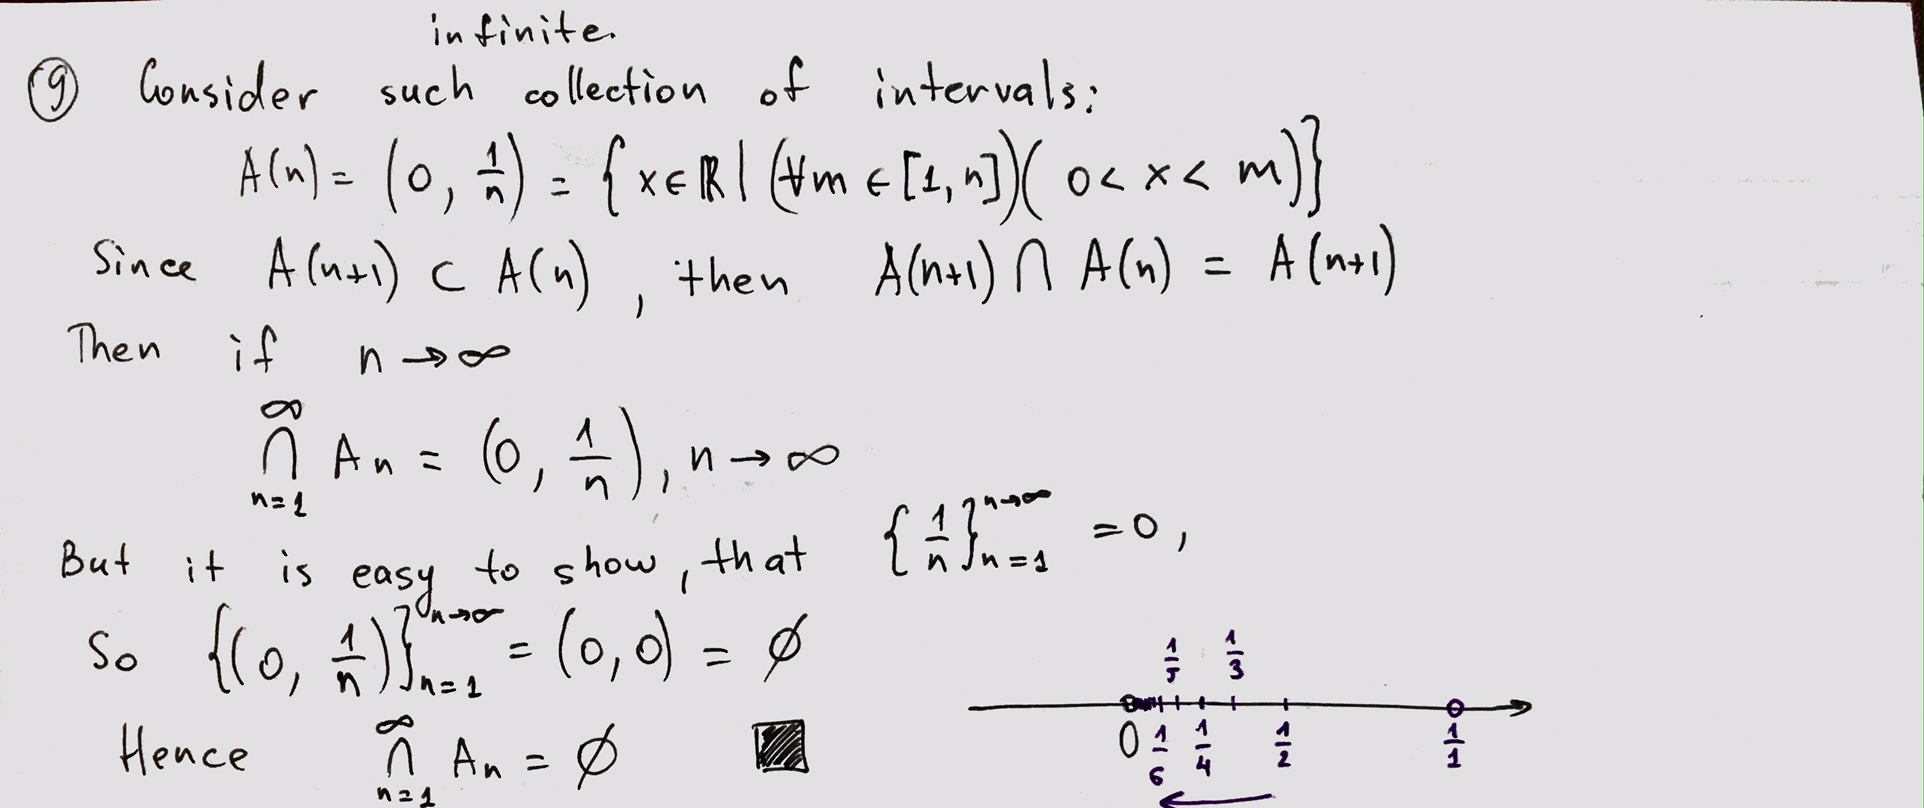 infinite.
⑨ Consider such collection of intervals:
A(n) = (0, 1/n) = {x ∈ ℝ | (∀m ∈ [1, n])(0 < x < m)}
Since A(n+1) ⊂ A(n), then A(n+1) ∩ A(n) = A(n+1)
Then if n → ∞
∞ ⋂ n=1 An = (0, 1/n), n → ∞
But it is easy to show, that {1/n} n→∞ n=1 = 0,
So {(0, 1/n)} n→∞ n=1 = (0, 0) = ∅
Hence ∞ ⋂ n=1 An = ∅
1/5 1/3
0 1/6 1/4 1/2 1/1